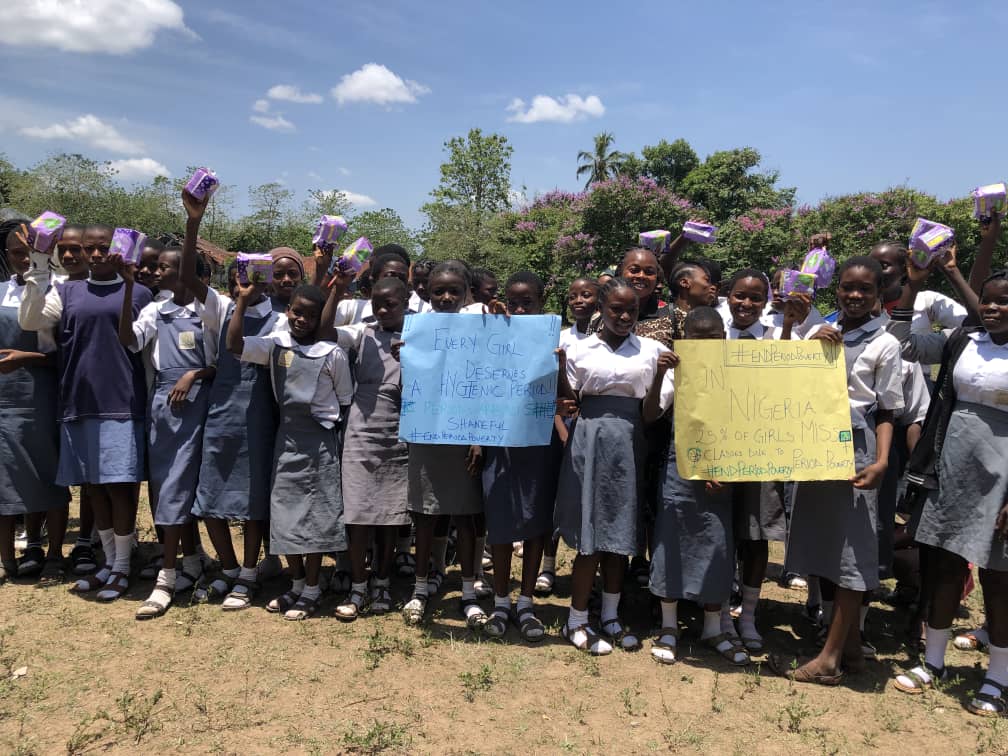 EVERY GIRL
DESERVES
A HYGIENIC PERIOD!
PERIOD
SHAMEFUL
#ENDPERIODPOVERTY
#ENDPERIODPOVERTY
IN
NIGERIA
25% OF GIRLS MISS
CLASSES DUE TO PERIOD POVERTY
#ENDPERIODPOVERTY